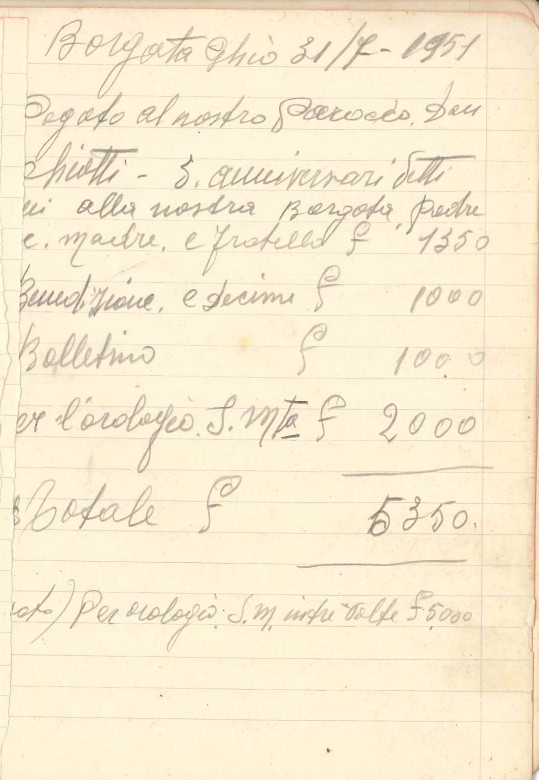 Borgata Ghiò 31/7-1951
Pagato al nostro Parocco. Don
chiotti - 3. anniversari detti
qui alla nostra Borgata, Padre
e. madre. e fratello £ 1350
Benedizione. e decime £ 1000
Bolletino £ 1000
per l'orologio. S. Mta £ 2000
Totale £ 5350.
Per orologio. S. M. in tre volte £ 5000